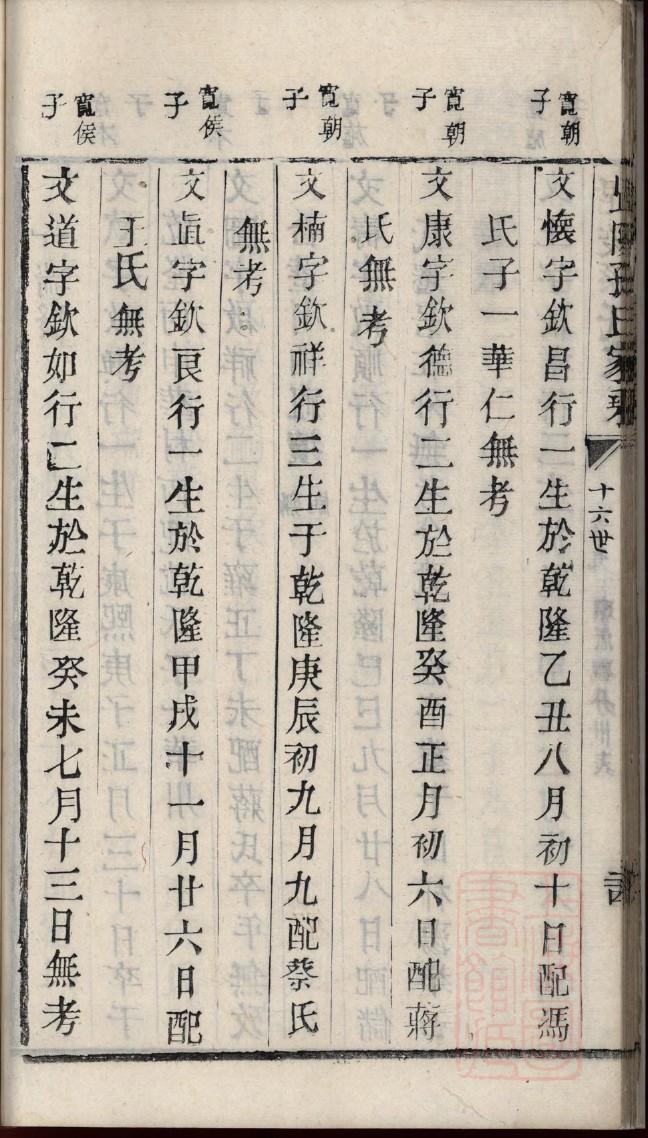 孫氏家乘
十六世
寬朝
子
文懷字欽昌行一生於乾隆乙丑八月初十日配馮
氏子一華仁無考
寬朝
子
文康字欽德行二生於乾隆癸酉正月初六日配蔣
氏無考
寬朝
子
文楠字欽祥行三生于乾隆庚辰初九月九配蔡氏
無考
寬侯
子
文眞字欽良行一生於乾隆甲戌十一月廿六日配
王氏無考
寬侯
子
文道字欽如行二生於乾隆癸未七月十三日無考